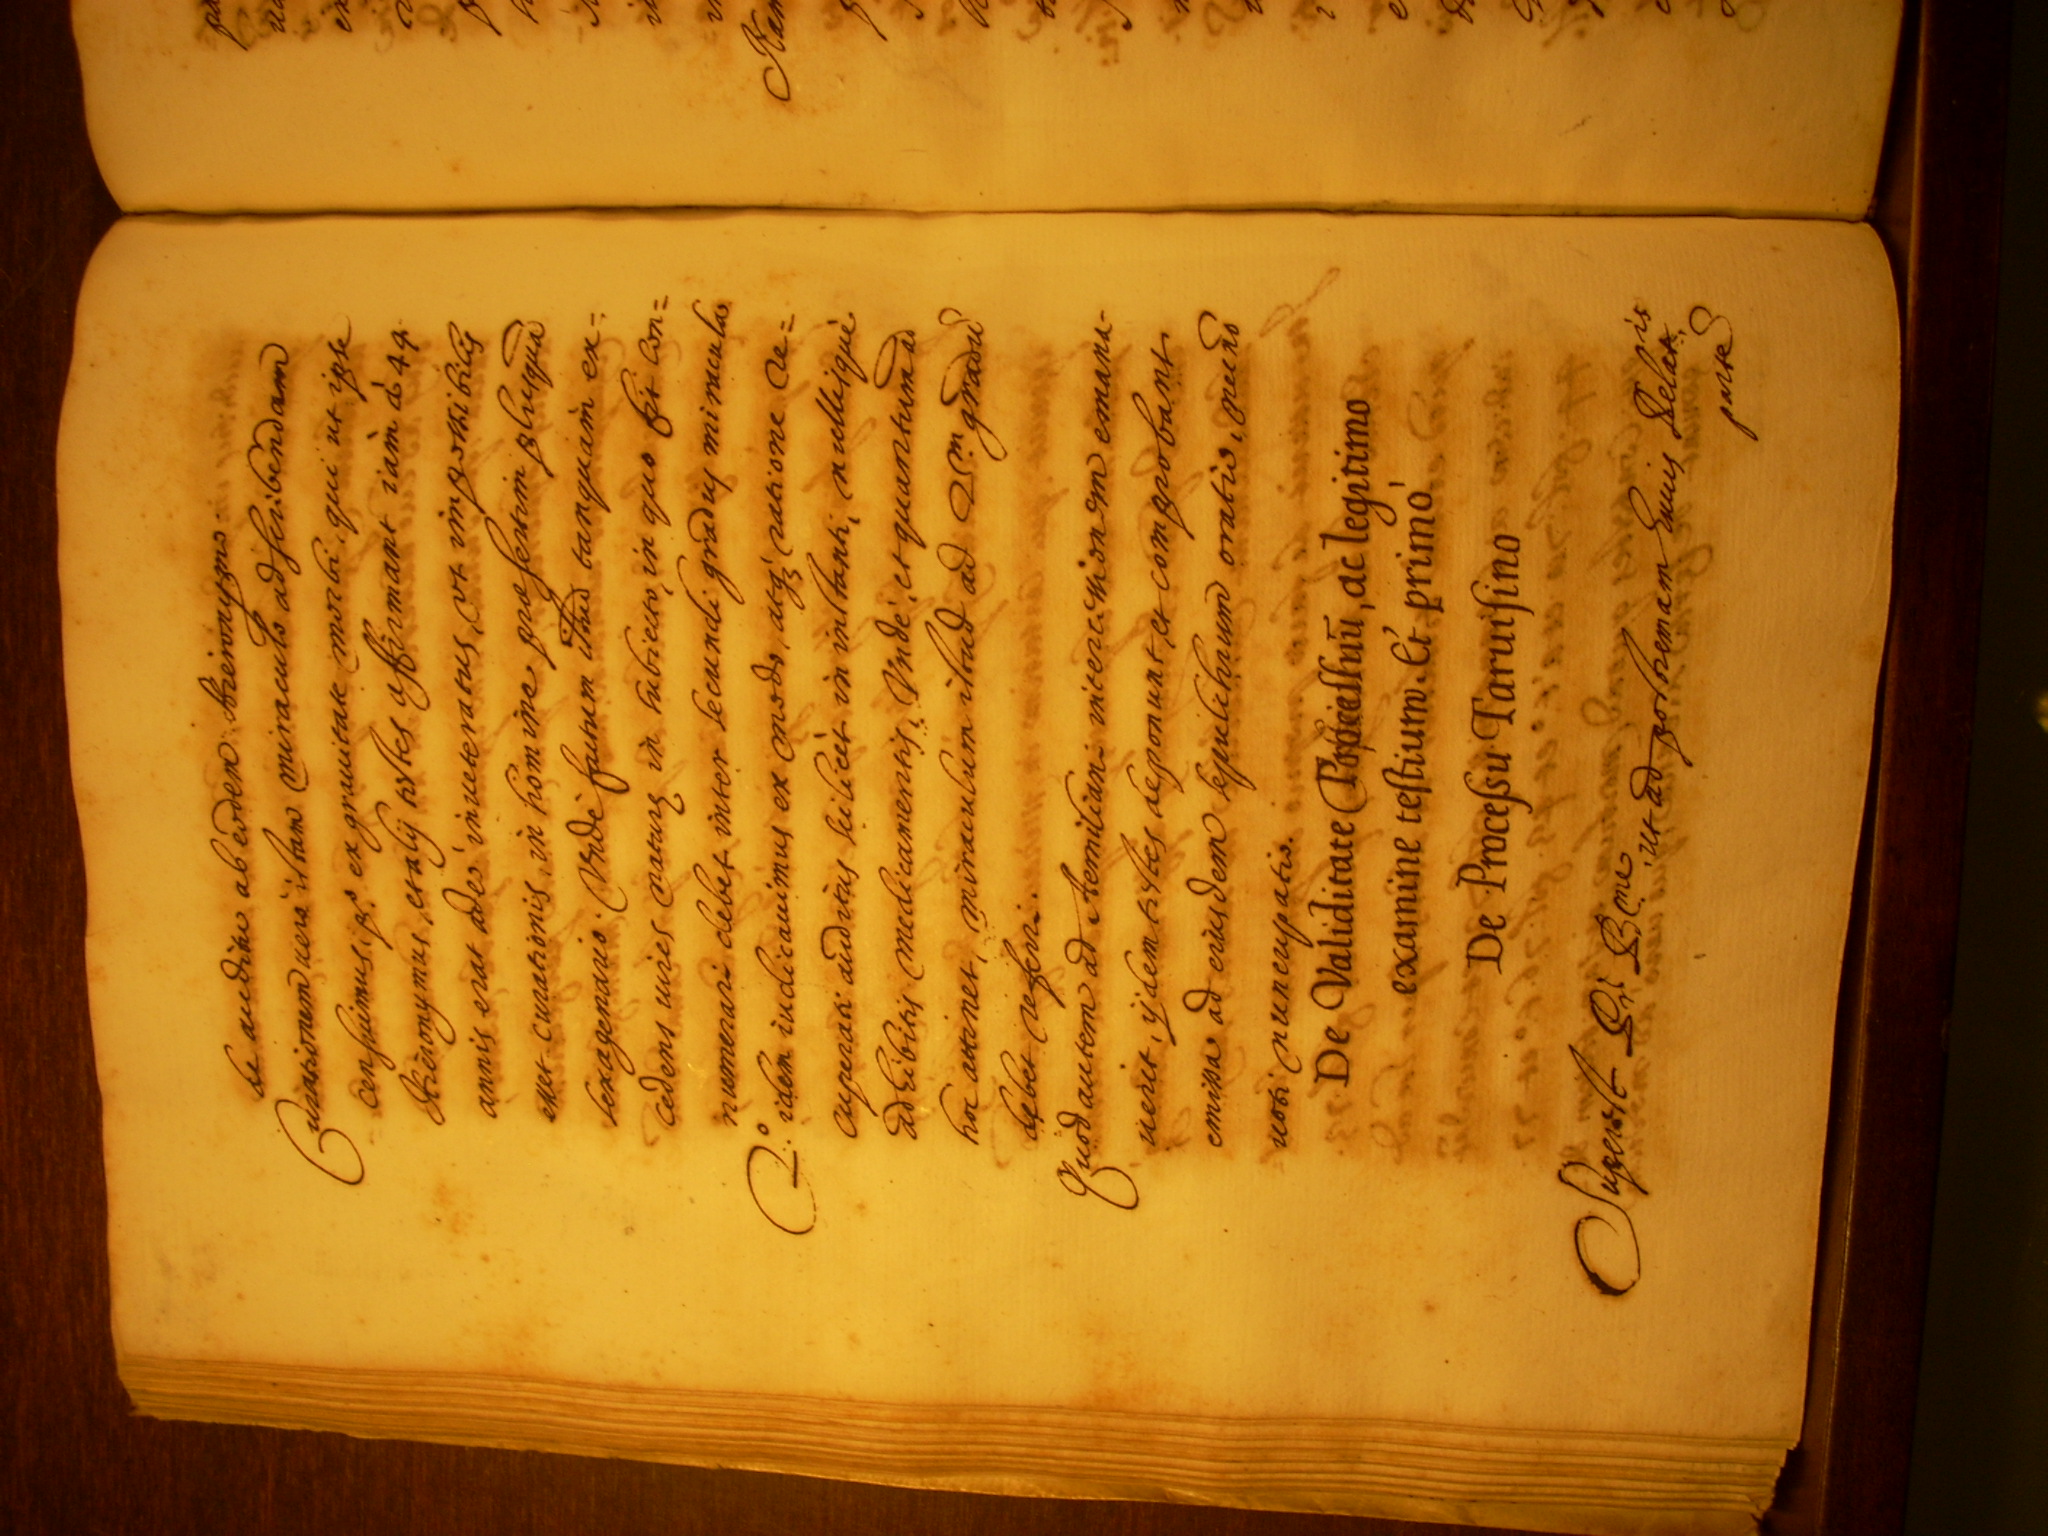 se audito ab eodem Hieronymo.
Curationem vero istam miraculo adscribendam
censuimus, p.º ex gravitate morbi, qui ut ipse
Hieronymus, et alij testes affirmant iam à 44.
annis erat adeo inveteratus, ut impossibilis
esset curationis, in homine praesertim plusquã
sexagenario: Unde fatum illud tanquam ex=
cedens vires naturę in subiecto, in quo fit con=
numerari debet inter secundi gradus miracula
2.º idem iudicavimus ex modo, atq; ratione re=
cuperati auditus scilicet in instanti, nullisque
adhibitis medicamentis; Unde, et quantum ad
hoc attinet, miraculum istud ad 3.m gradũ
debet referri.
Quod autem ad Aemiliani intercessionem emana-
verit, ijdem testes deponunt, et comprobant
emissa ad eiusdem sepulchrum oratio,
voti nuncupatio.
De Validitate Processuũ, ac legitimo
examine testium. Et primo
De Processu Taruisino
Superest ut ad postremam huius Relat.is
parte